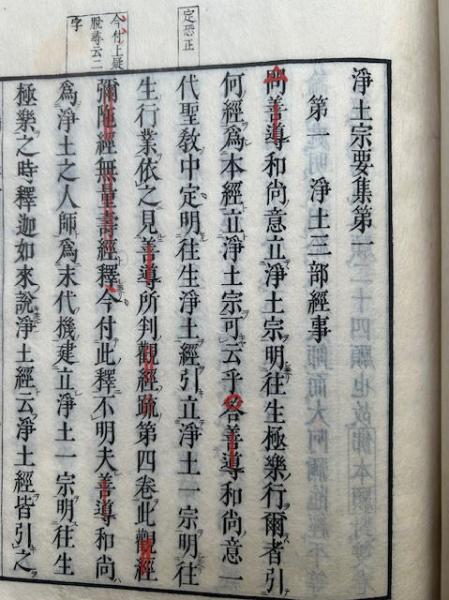 定恐正
今付上疑
脫尋云二
字
淨土宗要集第一
第一 淨土三部經事
問善導和尚意立淨土宗明往生極樂行爾者引
何經爲本經立淨土宗可云乎答善導和尚意一
代聖教中定明往生淨土經引立淨土一宗明往
生行業依之見善導所判觀經疏第四卷此觀經
彌陀經無量壽經釋今付此釋不明夫善導和尚
爲淨土之人師爲末代機建立淨土一宗明往生
極樂之時釋迦如來說淨土經云淨土經皆引之